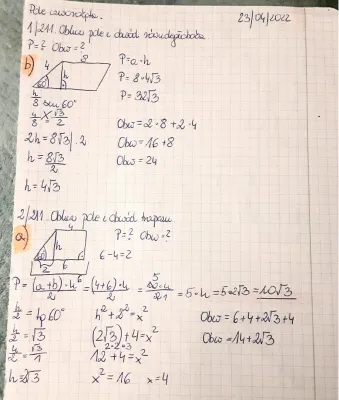 Pole czworokąta.
23/04/2022
1/211. Oblicz pole i obwód równoległoboku
P=? Obw=?
b)
8
4
h
60°
P=a·h
P=8·4√3
P=32√3
h/8 sin60°
h/8 = √3/2
2h=8√3 /:2
h=8√3/2
h=4√3
Obw=2·8+2·4
Obw=16+8
Obw=24
2/211. Oblicz pole i obwód trapezu
a)
4
h
60°
2
6
6-4=2
P=? Obw=?
P=(a+b)·h/2=(4+6)·h/2=
=5·h=5·2√3=10√3
h/2=tg60°
h/2=√3
h/2=√3/1
h=2√3
h²+2²=x²
(2√3)+4=x²
2·2·3
12+4=x²
x²=16 x=4
Obw=6+4+2√3+4
Obw=14+2√3